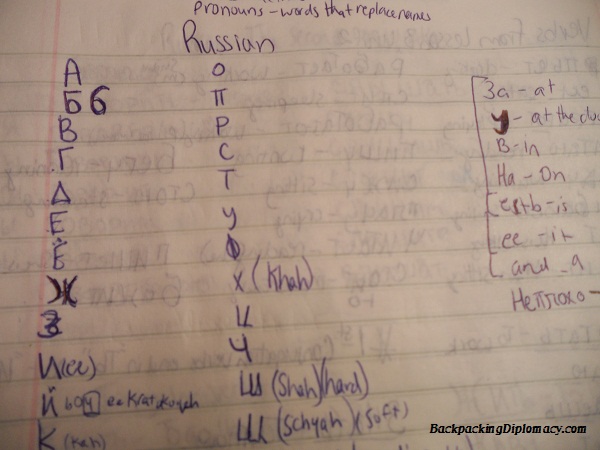 pronouns - words that replace names
Russian
А
Б б
В
Г
Д
Е
Ё
Ж
З
И (ee)
Й
К (kah)
О
П
Р
С
Т
У
Ф
Х (Khah)
Ц
Ч
Ш (Shah) (hard)
Щ (Schyah) (soft)
За - at
У - at the
В - in
На - On
есть - is
ее - it
and - а
Неплохо -
BackpackingDiplomacy.com